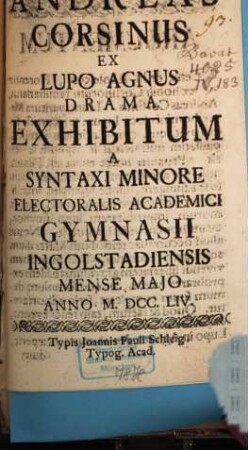 ANDREAS
CORSINUS
EX
LUPO AGNUS
DRAMA
EXHIBITUM
A
SYNTAXI MINORE
ELECTORALIS ACADEMICI
GYMNASII
INGOLSTADIENSIS
MENSE MAJO
ANNO M. DCC. LIV.
Typis Joannis Pauli Schleig,
Typog. Acad.
93.
Bavar
4025
IV, 183